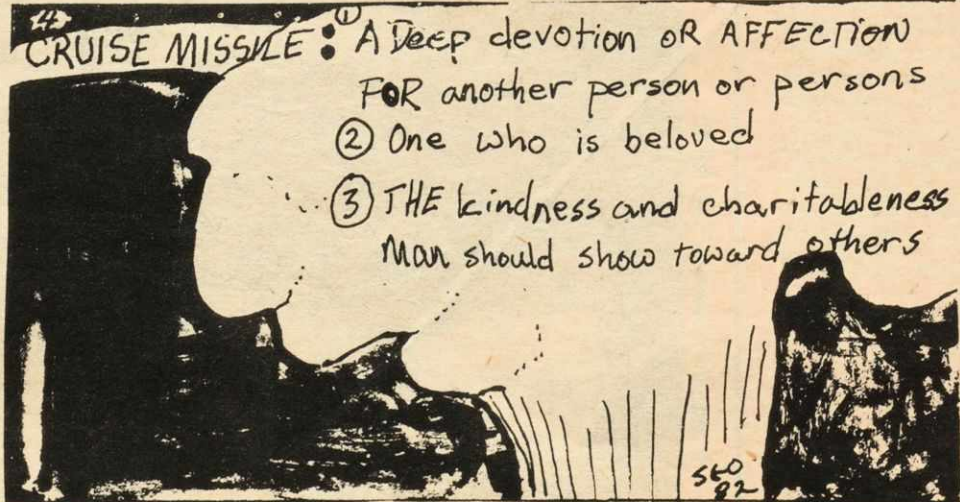 CRUISE MISSILE: ① A Deep devotion OR AFFECTION
FOR another person or persons
② One who is beloved
③ THE kindness and charitableness
Man should show toward others
82